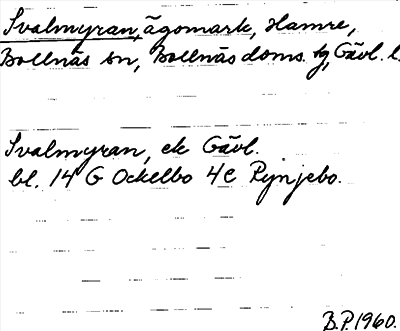 Svalmyran, ägomark, Hamre,
Bollnäs sn, Bollnäs doms. tg, Gävl. l.
Svalmyran, ek Gävl.
bl. 14 G Ockelbo 4e Rynjebo.
B.P. 1960.